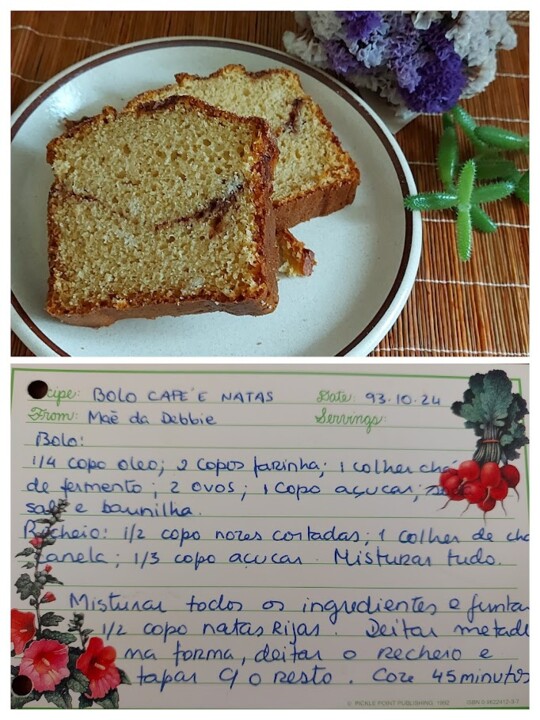 cipe: BOLO CAFÉ E NATAS Date: 93.10.24
From: Mãe da Debbie Servings:
Bolo:
1/4 copo oleo; 2 copos farinha; 1 colher chá
de fermento; 2 ovos; 1 copo açucar;
sal e baunilha.
Recheio: 1/2 copo nozes cortadas; 1 colher de chá
canela; 1/3 copo açucar. Misturar tudo.
Misturar todos os ingredientes e juntar
1/2 copo natas Rijas. Deitar metade
na forma, deitar o recheio e
tapar c/ o resto. Coze 45 minutos
© PICKLE POINT PUBLISHING, 1992 ISBN